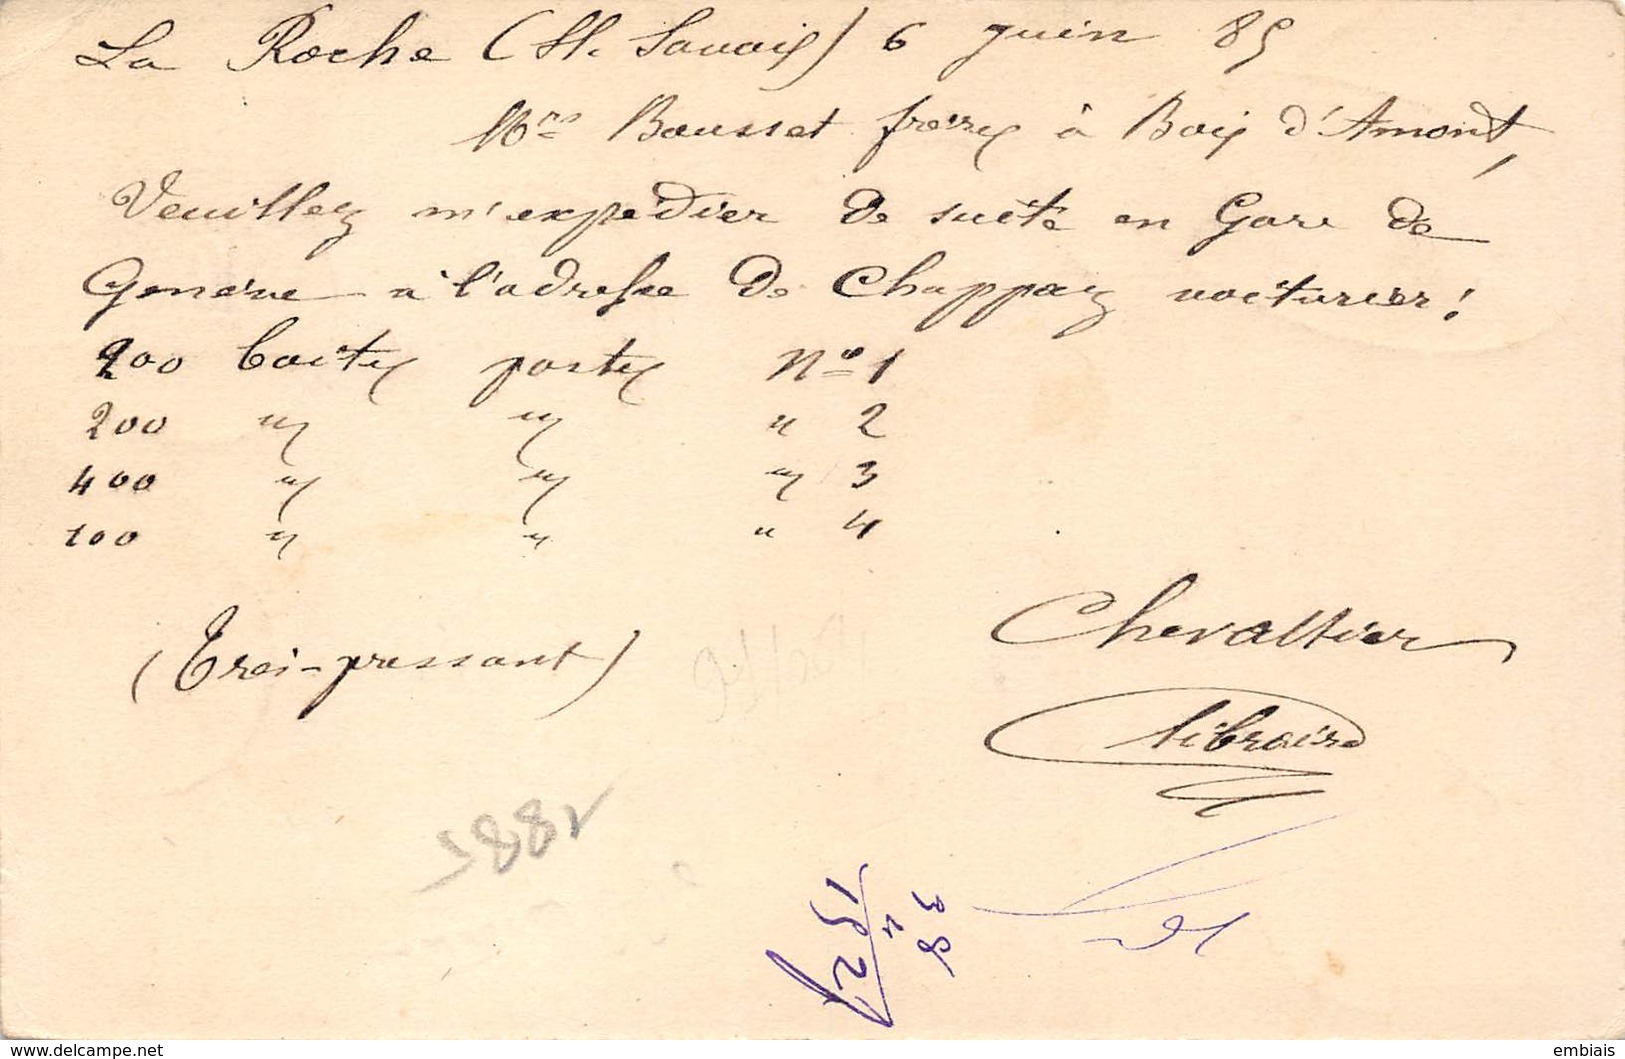 La Roche (Hte Savoie) 6 Juin 85
Mrs Bousset frères à Bois d'Amont,
Veuillez m'expédier de suite en Gare de
Genève à l'adresse de Chappaz voiturier :
200 boites postes No 1
200 " " " 2
400 " " " 3
100 " " " 4
(Très-pressant)
Chevallier
libraire
delcampe.net
embiais